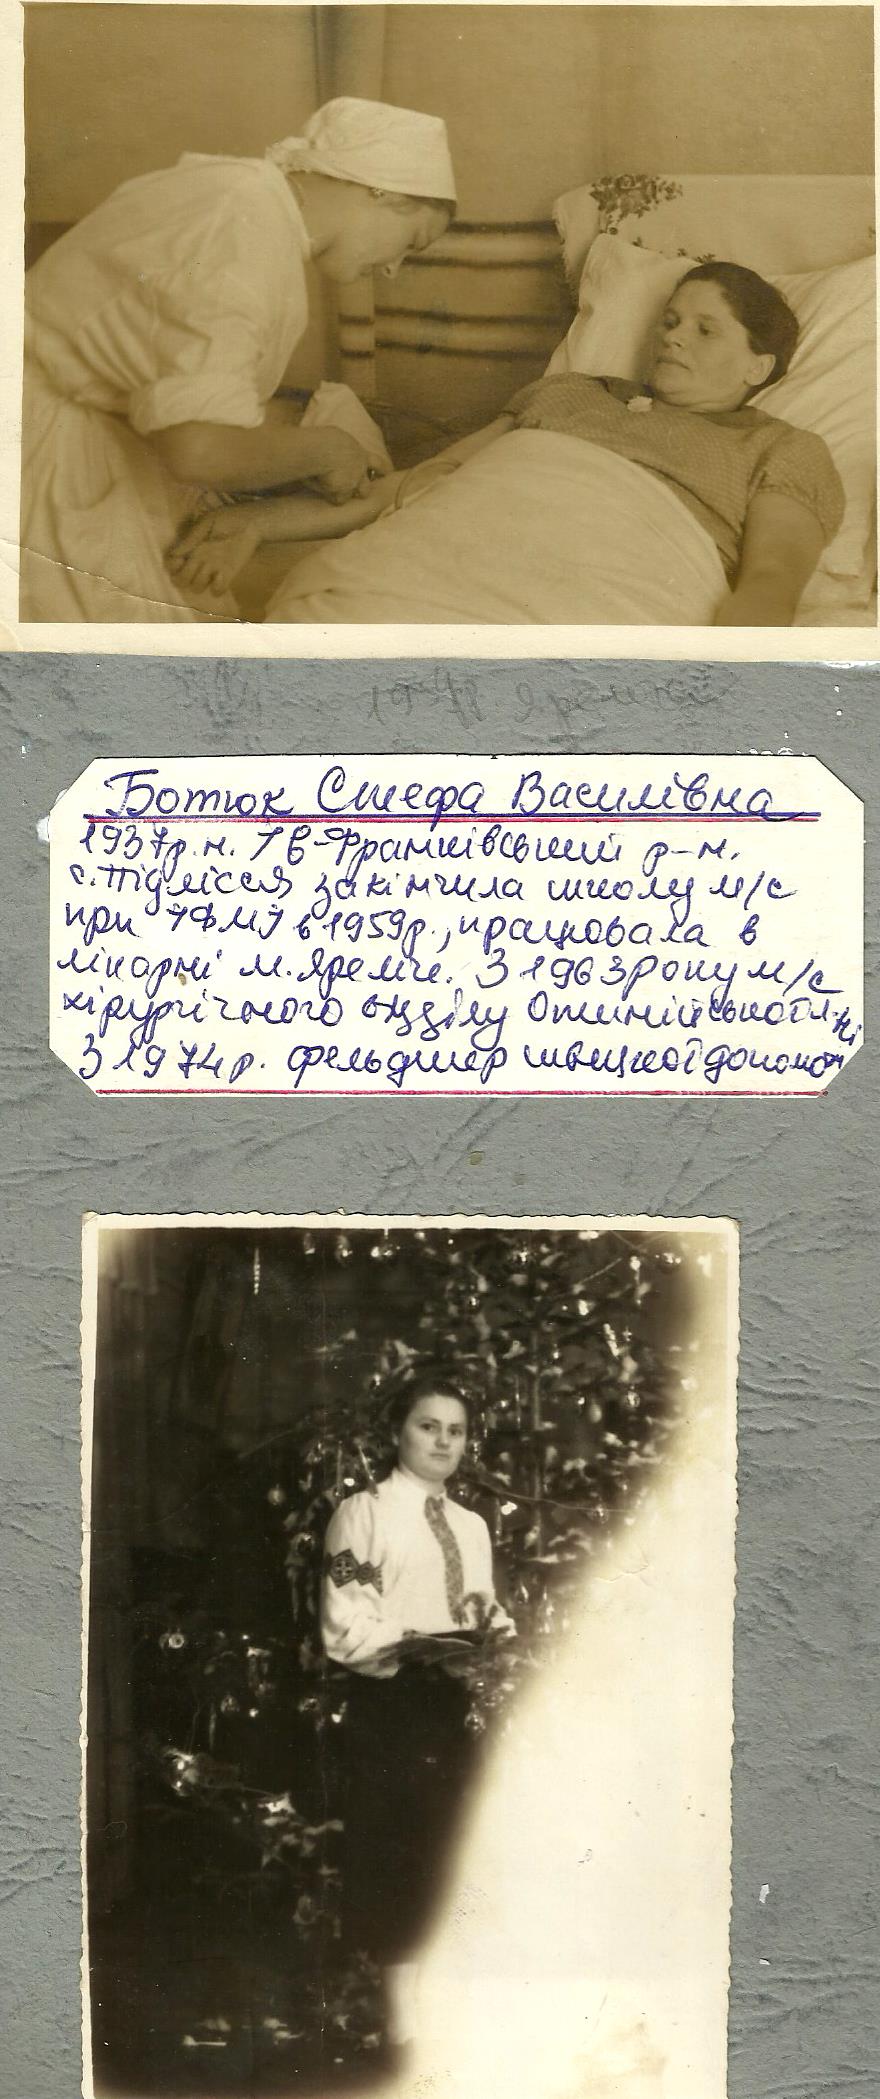 Ботюк Стефа Василівна
1937р.н. Ів-Франківський р-н.
с.Підлісся закінчила школу м/с
при ІФМІ в 1959р., працювала в
лікарні м.Яремче. З 1963року м/с
хірургічного відділу Отинійської л-ні
З 1974р. фельдшер швидкої допомоги